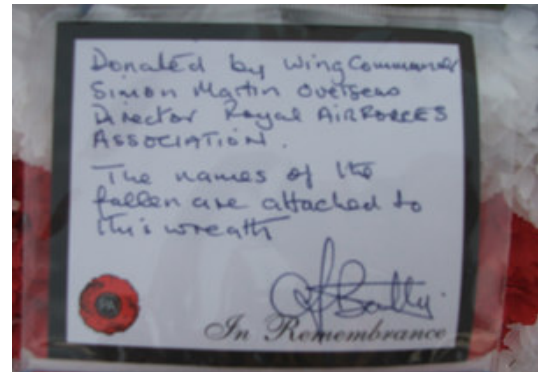 Donated by Wing Commander
Simon Martin Overseas
Director Royal AIRFORCES
ASSOCIATION.
The names of the
fallen are attached to
this wreath
In Remembrance